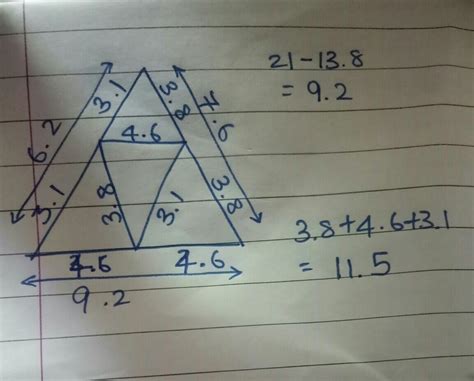 21-13.8
= 9.2
3.1
3.8
7.6
6.2
4.6
3.1
3.8
3.1
3.8
4.6
4.6
9.2
3.8+4.6+3.1
= 11.5